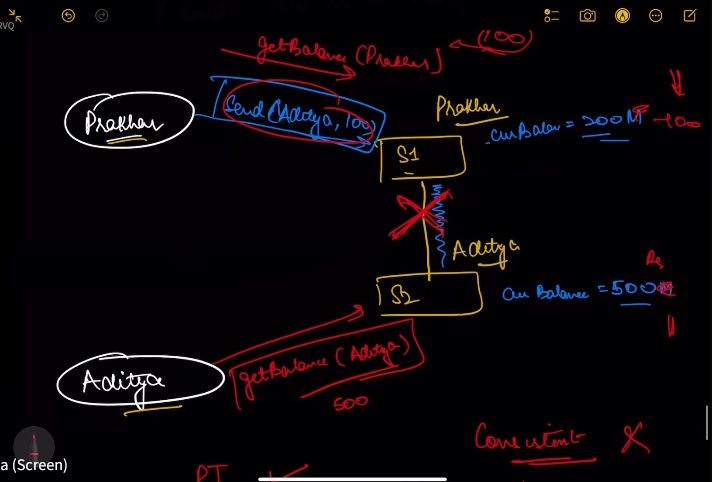 RVQ
getBalance (Prakhar)
(100)
Prakhar
Send (Aditya, 100)
Prakhar
curBalan = 200
-100
S1
Aditya
Rs
S2
curBalance = 500
getBalance (Aditya)
500
Aditya
Consistent X
a (Screen)
PT